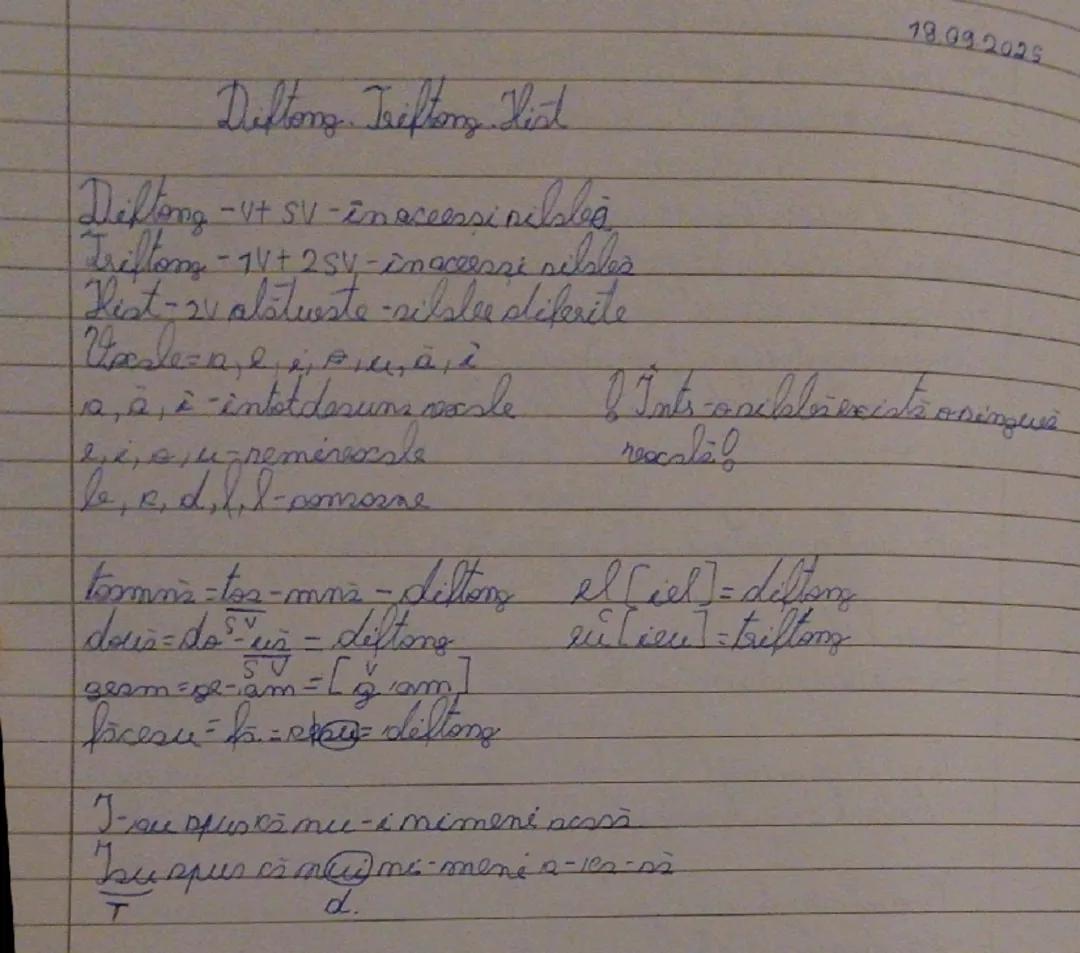 18.09.2025
Diftong. Triftong. Hiat
Diftong - V + SV - în aceeași silabă
Triftong - 1V + 2SV - în aceeași silabă
Hiat - 2V alăturate - silabe diferite
Vocale = a, e, i, o, u, ă, î
a, ă, î - întotdeauna vocale ! Într-o silabă există o singură
e, i, o, u - semivocale vocală!
b, c, d, f, l - consoane
toamnă = toa - mnă - diftong el [iel] = diftong
SV
două = do - uă = diftong eu [ieu] = triftong
SV
geam = ge - am = [ğ am]
făceau = fă = diftong
I-au spus că nu-i nimeni acasă
Iau spus că nui ni-meni a-ca-să
T d.